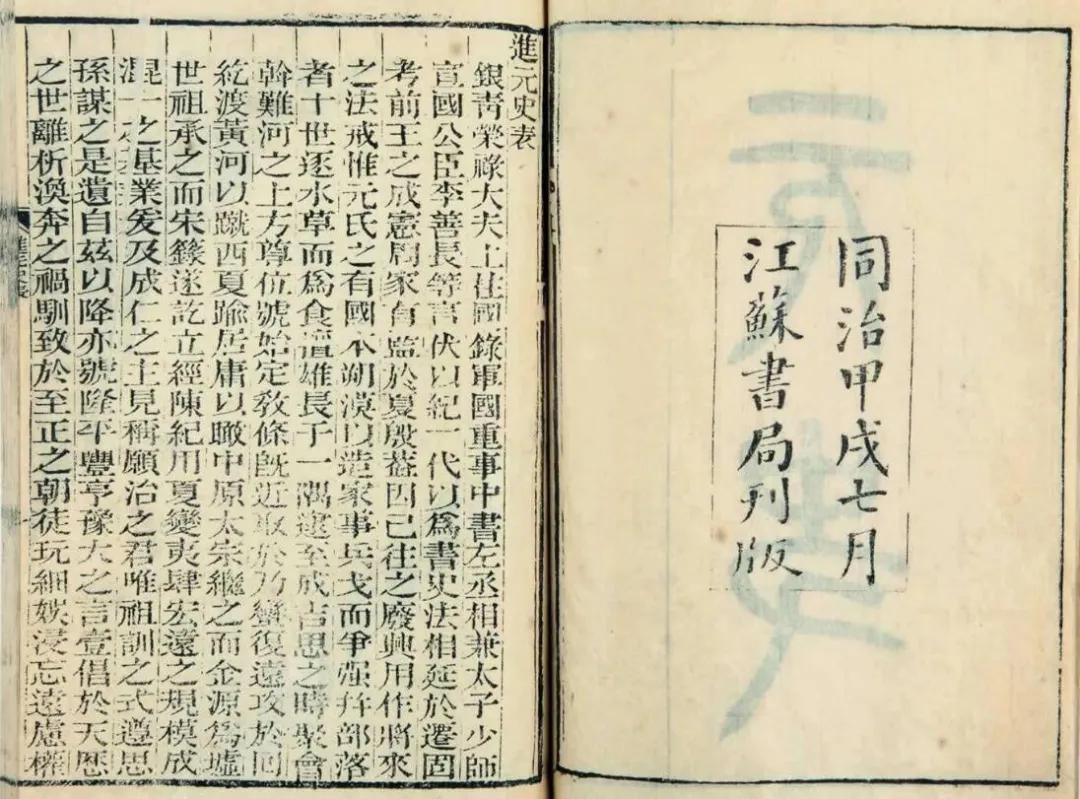 同治甲戌七月
江蘇書局刊版
進元史表
銀青榮祿大夫上柱國錄軍國重事中書左丞相兼太子少師
宣國公臣李善長等言伏以紀一代以爲書史法相延於遷固
考前王之成憲周家有監於夏殷蓋因已往之廢興用作將來
之法戒惟元氏之有國本朔漠以造家事兵戈而爭强幷部落
者十世逐水草而爲食雄長于一隅逮至成吉思之時聚會
斡難河之上方尊位號始定教條旣近取於乃蠻復遠攻於回
紇渡黃河以蹴西夏踰居庸以瞰中原太宗繼之而金源爲墟
世祖承之而宋籙遂訖立經陳紀用夏變夷肆宏遠之規模成
混一之基業爰及成仁之主見稱願治之君唯祖訓之式遵思
孫謀之是遺自茲以降亦號隆平豐亨豫大之言壹倡於天歷
之世離析渙奔之禍馴致於至正之朝徒玩細娛浸忘遠慮權